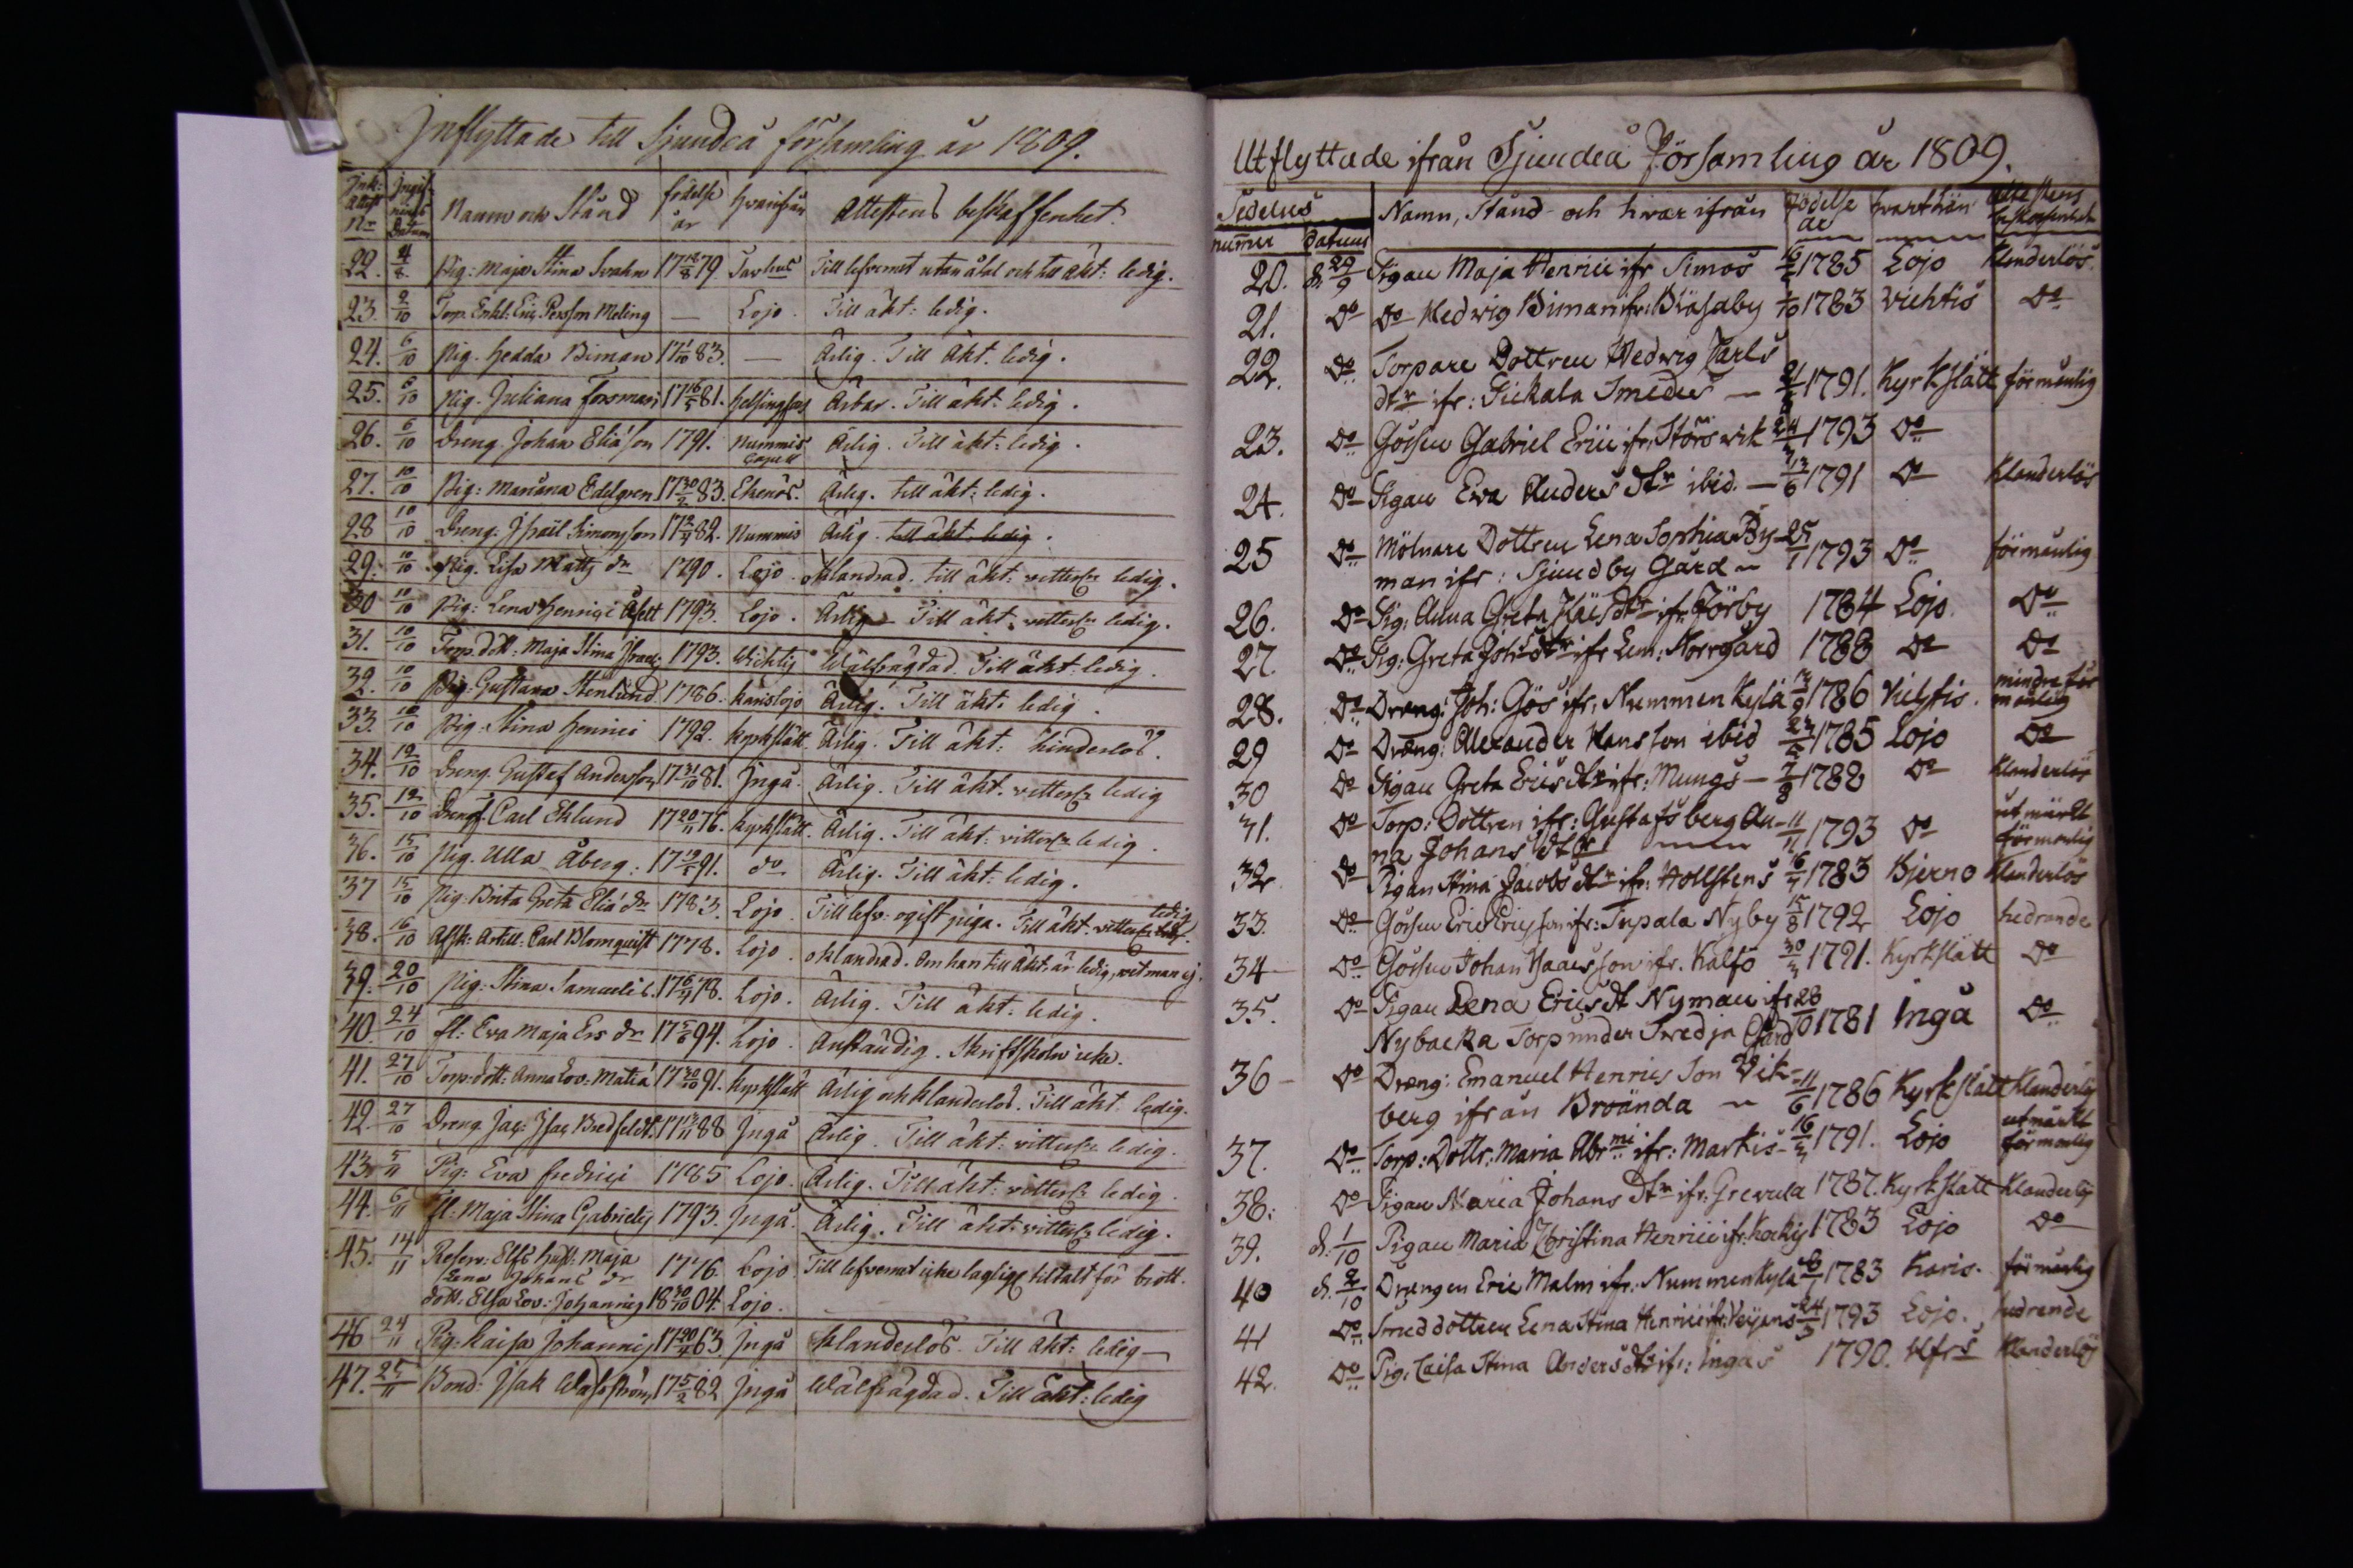 Inflyttade till Sjundeå församling år 1809.
Ink: Attest Nr Ingifningens Datum Namn och Stånd födelse år hvarifrån Attestens beskaffenhet.
22. 4/8 Pig: Maja Stina Svahn 17 18/8 79. Tavhus Till lefvernet utan åtal och till äkt: ledig.
23. 2/10 Torp. Enkl: Eric Persson Meling — Lojo. Till äkt: ledig.
24. 6/10 Pig. Hedda Biman 17 1/10 83. — Ärlig. Till Äkt. ledig.
25. 6/10 Pig. Juliana Forsman 17 16/5 81. Helsingfors Ärbar. Till äkt: ledig.
26. 6/10 Dreng Johan Eliæson 1791. Nummis Capell Ärlig. Till äkt: ledig.
27. 10/10 Pig: Mariana Edelgren 17 30/2 83. Ekenäs. Ärlig. till äkt: ledig.
28 10/10 Dreng: Israël Simonsson 82. Nummis Ärlig. till äkt: ledig.
29. 10/10 Pig. Lisa Matts dr 1790. Lojo. oklandrad. till äkt: vitterl: ledig.
30 10/10 Pig: Lena Henrici 1793. Lojo. Ärlig – Till äkt: vitterl: ledig.
31. 10/10 Torp. dott: Maja Stina Israels 1793. Wichtis Wälfrägdad. Till äkt: ledig.
32. 10/10 Pig: Gustava Stenlund 1786. Karislojo Ärlig. Till äkt: ledig.
33. 10/10 Pig. Stina Henrici 1792. Kyrkslätt. Ärlig. Till äkt: hinderlös.
34. 12/10 Dreng. Gustaf Andersson 17 31/10 81. Ingå. Ärlig. Till äkt. vitterl: ledig
35. 12/10 Dreng. Carl Eklund 17 20/11 76. Kyrkslätt. Ärlig. Till äkt: vitterl: ledig.
36. 15/10 Pig. Ulla Åberg. 91. do Ärlig. Till äkt: ledig.
37 15/10 Pig: Brita Greta Eliæ dr 1783. Lojo. Till lefv: ogift piga. Till äkt. vitterl: ledig.
38. 16/10 Afsk: Artill: Carl Blomquist 1778. Lojo. oklandrad. Om han till Äkt: är ledig, vet man ej.
39. 20/10 Pig: Stina Samuelis. 78. Lojo. Ärlig. Till äkt: ledig.
40. 24/10 fl: Eva Maja Ers dr 94. Lojo. Anständig. Skriftskoln icke.
41. 27/10 Torp: dott: Anna Lov: Matiæ 17 30/10 91. Kyrkslätt Ärlig och klanderlös. Till äkt: ledig.
42. 27/10 Dreng Jac: Isac Bredfeldt. 88 Ingå Ärlig. Till äkt: vitterl: ledig.
43. 5/11 Pig: Eva Fredrici 1785 Lojo. Ärlig. Till äkt: vitterl: ledig.
44. 6/11 fl: Maja Stina Gabrielis 1793. Ingå. Ärlig. Till äkt: vitterl: ledig.
45. 14/11 Reserv: Elfs hust: Maja
Lena Johans dr 1776. Lojo. Till lefvernet icke lagligt tilltalt för brott.
dott: Elsa Lov: Johannis 18 30/10 04. Lojo.
46 24/11 Pig: Kaisa Johannis 63. Ingå Klanderlös. Till äkt: ledig —
47. 25/11 Bond: Isak Wafström 17 5/2 82 Ingå Wälfrägdad. Till äkt: ledig
Utflyttade ifrån Sjundeå Församling år 1809.
Sedelns nummer datum Namn, Stånd och hvar ifrån Födelse år hvarthän attestens beskaffenhet
20. d. 29/9 Pigan Maja Henrici ifr Simos 1785 Lojo klanderlös.
21. Do Do Hedwig Biman ifr: Blåsaby 1/10 1783 Vichtis Do
22. Do Torpare Dottren Hedwig Carls
dtr ifr: Pickala Smedes — 1791. Kyrkslätt förmånlig
23. Do Gossen Gabriel Erici ifr: Störsvik 1793 Do
24. Do Pigan Eva Anders dtr ibid. — 1791 Do Klanderlös
25 Do Mölnare Dottren Lena Sophia By-
man ifr: Sjundby Gård 1793 Do förmånlig
26. Do Pig: Anna Greta dtr ifr. Förby 1784 Lojo. Do
27. Do Pig: Greta Joh: dtr ifr Lem: Storgård 1788 Do Do
28. Do Dræng: Joh: Gös ifr: Nummenkylä 1786 Vichtis. mindre förmånlig
29 Do Dræng: Alexander Hansson ibid 1785 Lojo Do
30 Do Pigan Greta Erics dtr ifr: Mungs — 7/8 1788 Do klanderlös
31. Do Torp: Dottren ifr: Gustafsberg An-
na Johans dtr 11/11 1793 Do utmärkt förmånlig
32. Do Pigan Stina Jacobs dtr ifr: Hollstens 1783 Bjerno klanderlös
33. Do Gossen Eric Ericsson ifr: Tupala Nyby 15/8 1792 Lojo hedrande
34 Do Gossen Johan Isaacsson ifr. Kalfö 1791. Kyrkslätt Do
35. Do Pigan Lena Erics dt Nyman ifr
Nybacka Torp under Svedja Gård 28/10 1781 Ingå Do
36 Do Dræng: Emanuel Henrics Son Vik-
berg ifrån Broända 11/6 1786 Kyrkslätt Klanderlös
37. Do Torp: Dottr: Maria Abrmi ifr: Markis 1791. Lojo utmärkt förmånlig
38: Do Pigan Maria Johans dtr ifr: Grevula 1787. Kyrkslätt Klanderlös
39. d. 1/10 Pigan Maria Christina Henrici ifr: Kockis 1783 Lojo Do
40 d. 2/10 Drængen Eric Malm ifr: Nummenkylä 1783 Karis. förmånlig
41 Do Smeddottren Lena Stina Henrici ifr: Veijans 1793 Lojo. hedrande
42. Do Pig: Caisa Stina Anders dtr ifr: Ingås 1790. Hfrs Klanderlös